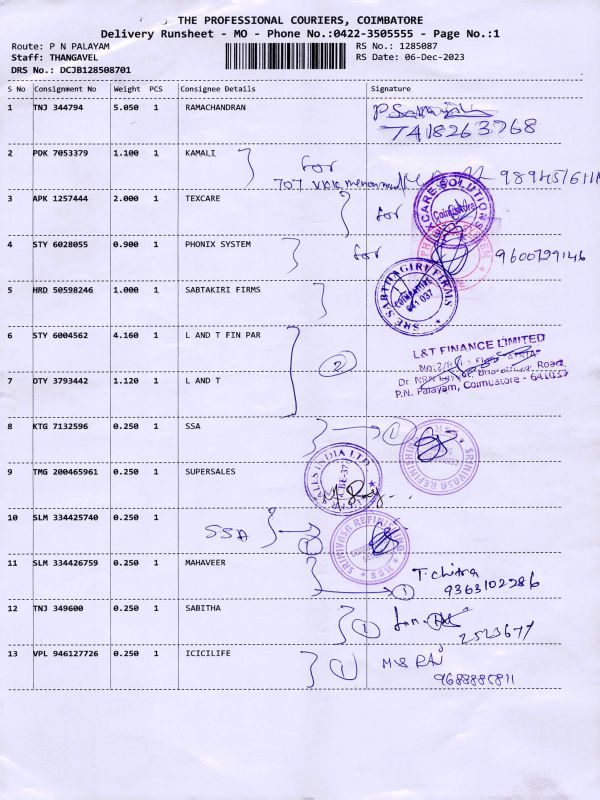 THE PROFESSIONAL COURIERS, COIMBATORE
Delivery Runsheet - MO - Phone No.:0422-3505555 - Page No.:1
Route: P N PALAYAM
Staff: THANGAVEL
DRS No.: DCJB128508701
RS No.: 1285087
RS Date: 06-Dec-2023
S No Consignment No Weight PCS Consignee Details Signature
1 TNJ 344794 5.050 1 RAMACHANDRAN
7418263768
2 PDK 7053379 1.100 1 KAMALI for
707
3 APK 1257444 2.000 1 TEXCARE for
TEXCARE SOLUTIONS
Coimbatore
4 STY 6028055 0.900 1 PHONIX SYSTEM for 9600799146
5 HRD 50598246 1.000 1 SABTAKIRI FIRMS
SRE SABTHAGIRI FIRMS
COIMBATORE
641 037
6 STY 6004562 4.160 1 L AND T FIN PAR
2
L&T FINANCE LIMITED
P.N. Palayam, Coimbatore - 641037
7 DTY 3793442 1.120 1 L AND T
8 KTG 7132596 0.250 1 SSA 1
SRINIVASA REFINISHING
9 TMG 200465961 0.250 1 SUPERSALES
SALES INDIA LTD
CBE-37
10 SLM 334425740 0.250 1
SSA 1
SRINIVASA REFINISHING
11 SLM 334426759 0.250 1 MAHAVEER
1 T. Chitra
9363102286
12 TNJ 349600 0.250 1 SABITHA
1
2523677
13 VPL 946127726 0.250 1 ICICILIFE
1 MS RAJ
9688885811